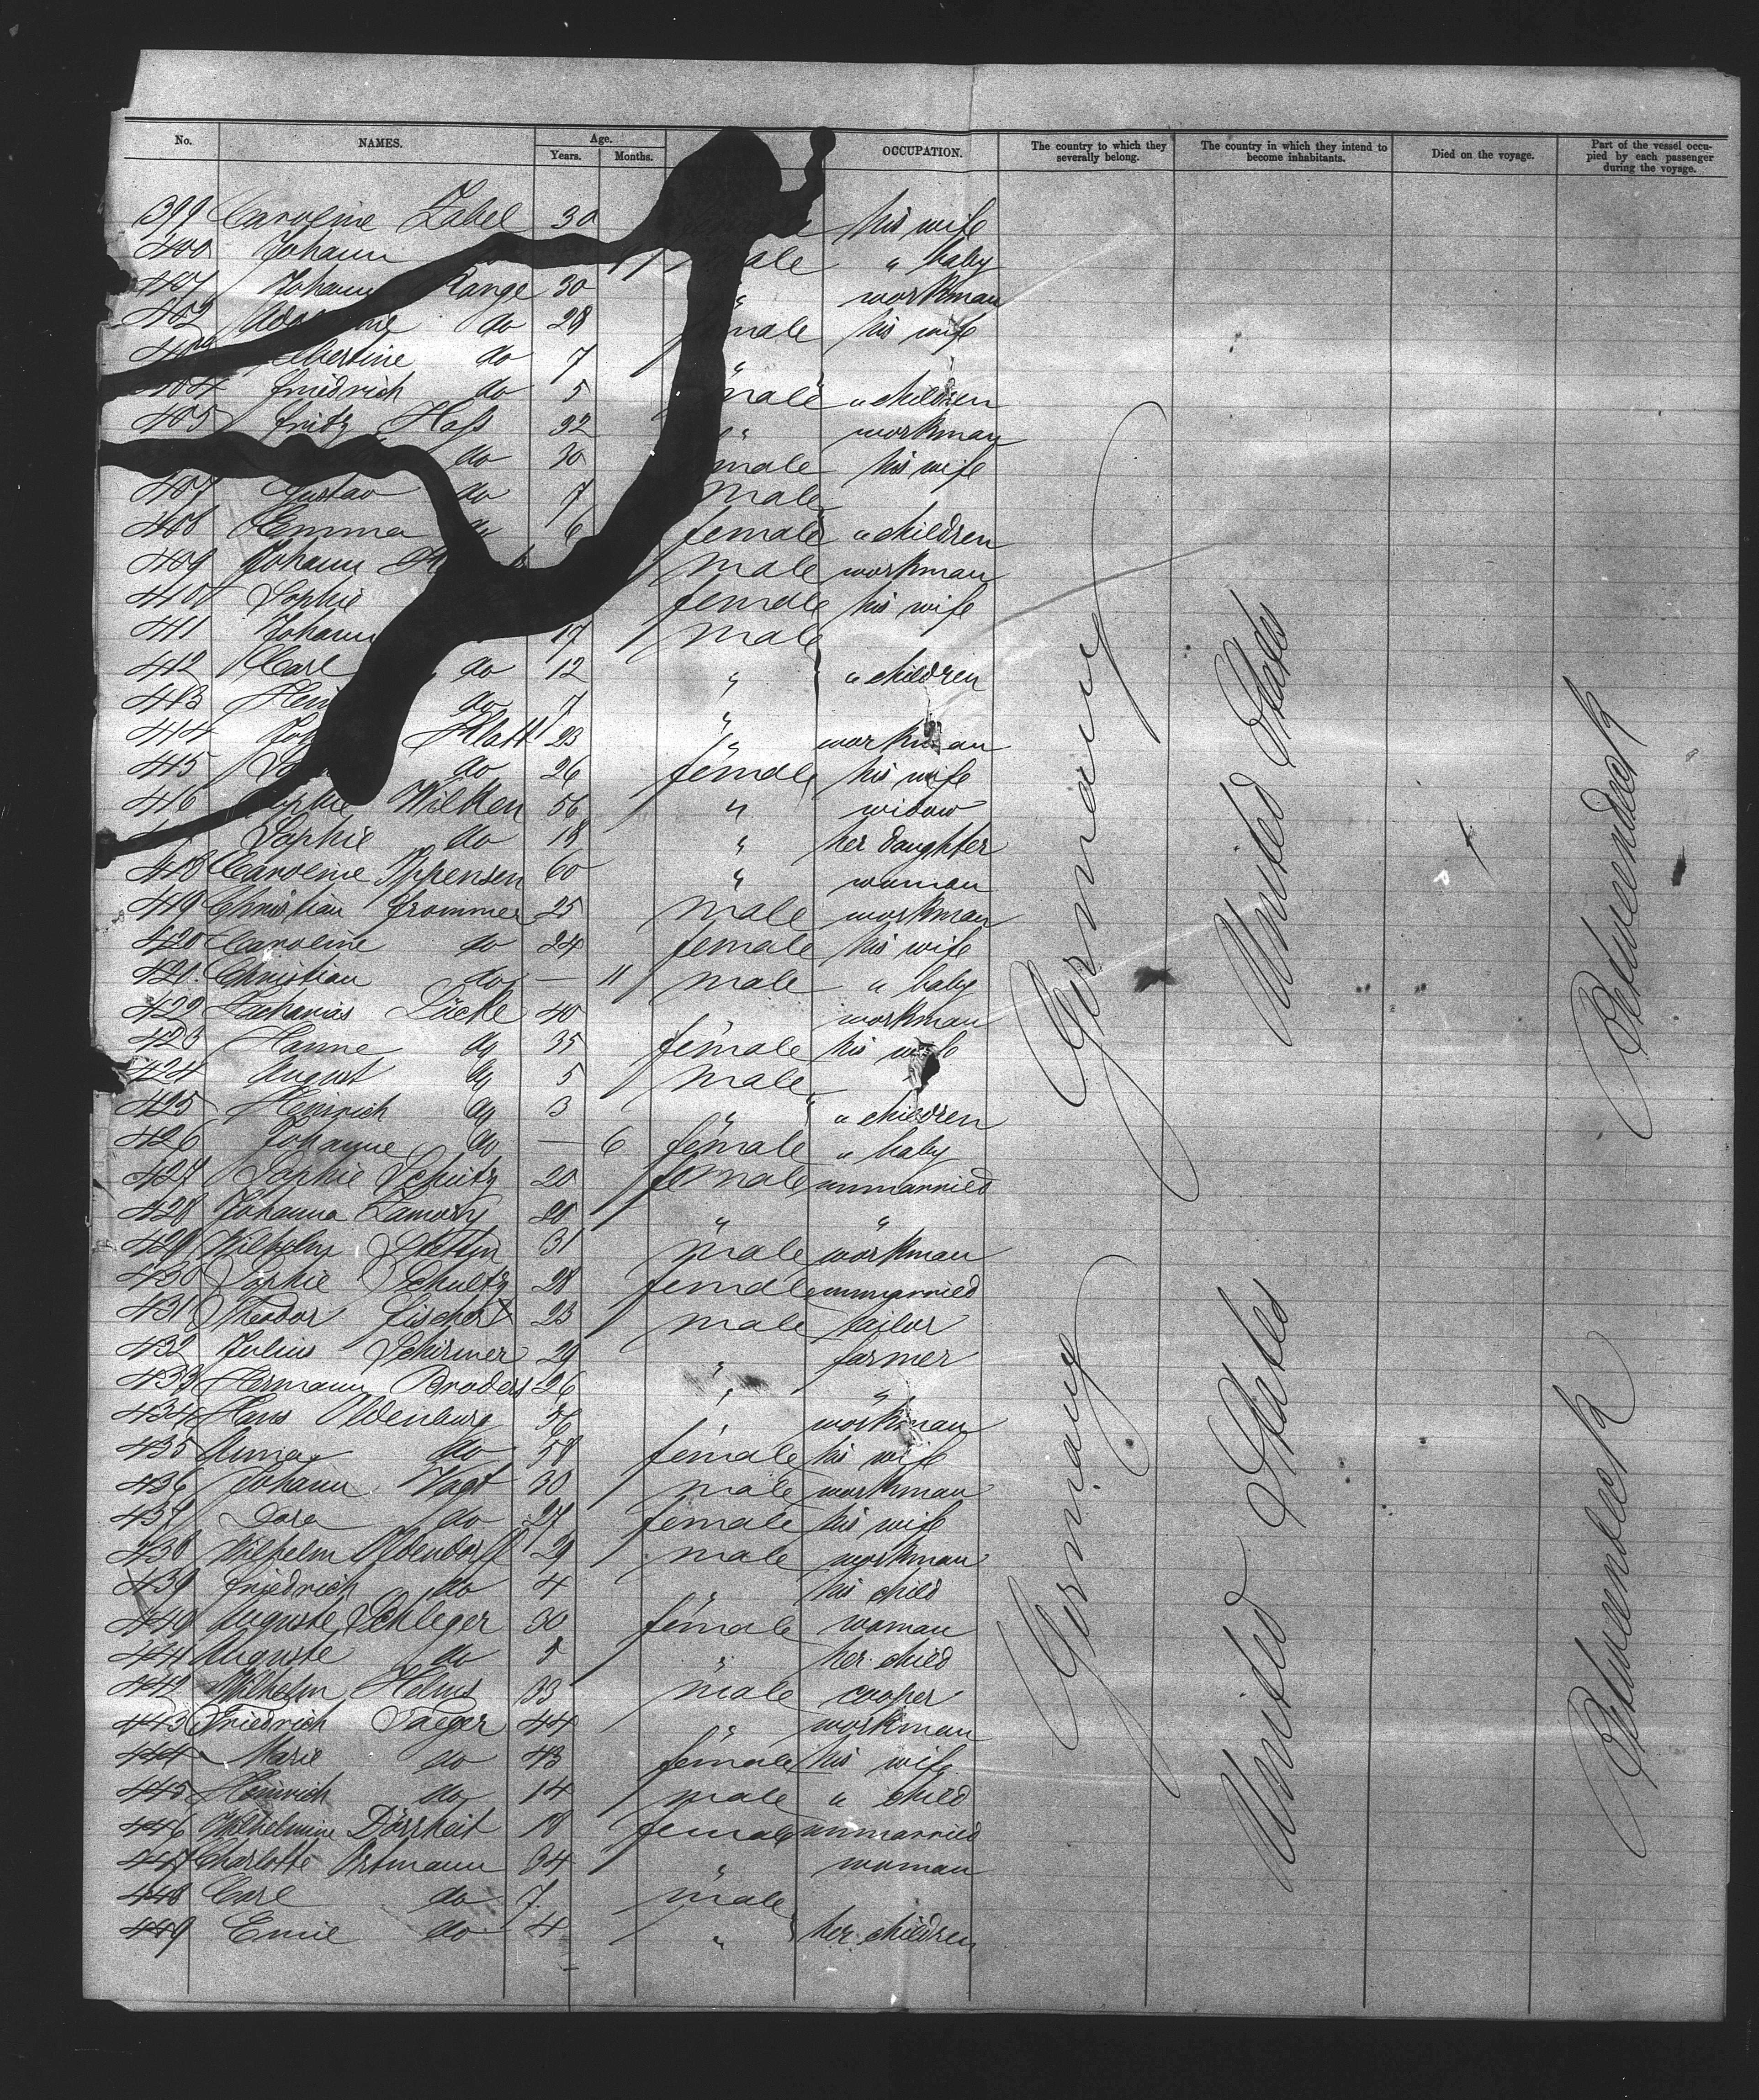 No. NAMES. Age. Years. Months. OCCUPATION. The country to which they severally belong. The country in which they intend to become inhabitants. Died on the voyage. Part of the vessel occupied by each passenger during the voyage.
399 Caroline Zabel 30 his wife
400 Johann " baby
401 Johann Range 30 " workman
402 do 28 his wife
do 7 "
404 Friedrich do 5 male " children
405 Fritz Hass 32 " workman
do 30 his wife
407 Gustav do 7 male
408 Emma do 6 female " children
409 Johann male workman
410 Sophie female his wife
411 Johann 17 male
412 Carl do 12 " " children
413 do 7 "
414 Platt 23 " workman
415 do 26 female his wife
416 Sophie Wilken 56 " widow
Sophie do 18 " her daughter
418 Caroline Ippensen 60 " woman
419 Christian Frommer 25 male workman
420 Caroline do 24 female his wife
421 Christian do — 11 male " baby
422 Zacharias Lücke 40 " workman
423 Hanne do 35 female his wife
424 August do 5 male
425 Heinrich do 3 " " children
426 Johanne do — 6 female " baby
427 Sophie Schütz 20 female unmarried
428 Johanna 20 " "
429 Wilhelm Stettin 31 male workman
430 Sophie Schultz 28 female unmarried
431 Theodor Fischer 23 male tailor
432 Julius Schirmer 29 " farmer
433 Hermann Broders 26 " "
434 Hans Oldenburg 56 " workman
435 Anna do 58 female his wife
436 Johann Vagt 30 male workman
437 Dora do 27 female his wife
438 Wilhelm Oldendorff 29 male workman
439 Friedrich do 4 " his child
440 Auguste Schleger 30 female woman
441 Auguste do 8 " her child
442 Wilhelm Helms 33 male cooper
443 Friedrich Jaeger 44 " workman
444 Marie do 43 female his wife
445 Heinrich do 14 male " child
446 Wilhelmine Dörrheit 18 female unmarried
447 Charlotte Ortmann 34 " woman
448 Carl do 7 male
449 Emil do 4 " her children
Germany
United States
Betweendeck
Germany
United States
Betweendeck